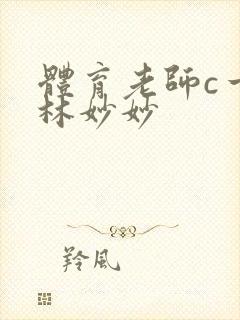 體育老師c一
林妙妙
羚風